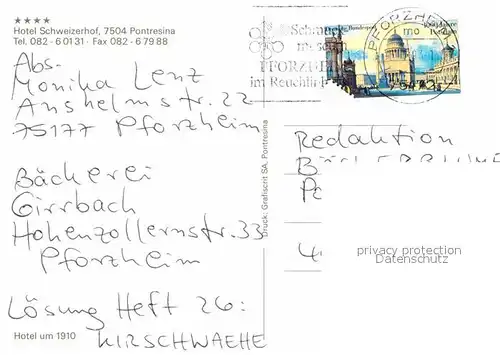 ★★★★
Hotel Schweizerhof, 7504 Pontresina
Tel. 082 - 6 01 31 · Fax 082 - 6 79 88
Abs.
Monika Lenz
Anshelmstr. 22
75177 Pforzheim
Bäckerei
Girrbach
Hohenzollernstr. 33
Pforzheim
Lösung Heft 26:
KIRSCHWAEHE
Hotel um 1910
Druck: Grafiscrit SA, Pontresina
Schmuck
PFORZHEIM
im Reuchlin
PFORZHEIM
1000 Jahre
Potsdam
Redaktion
privacy protection
Datenschutz